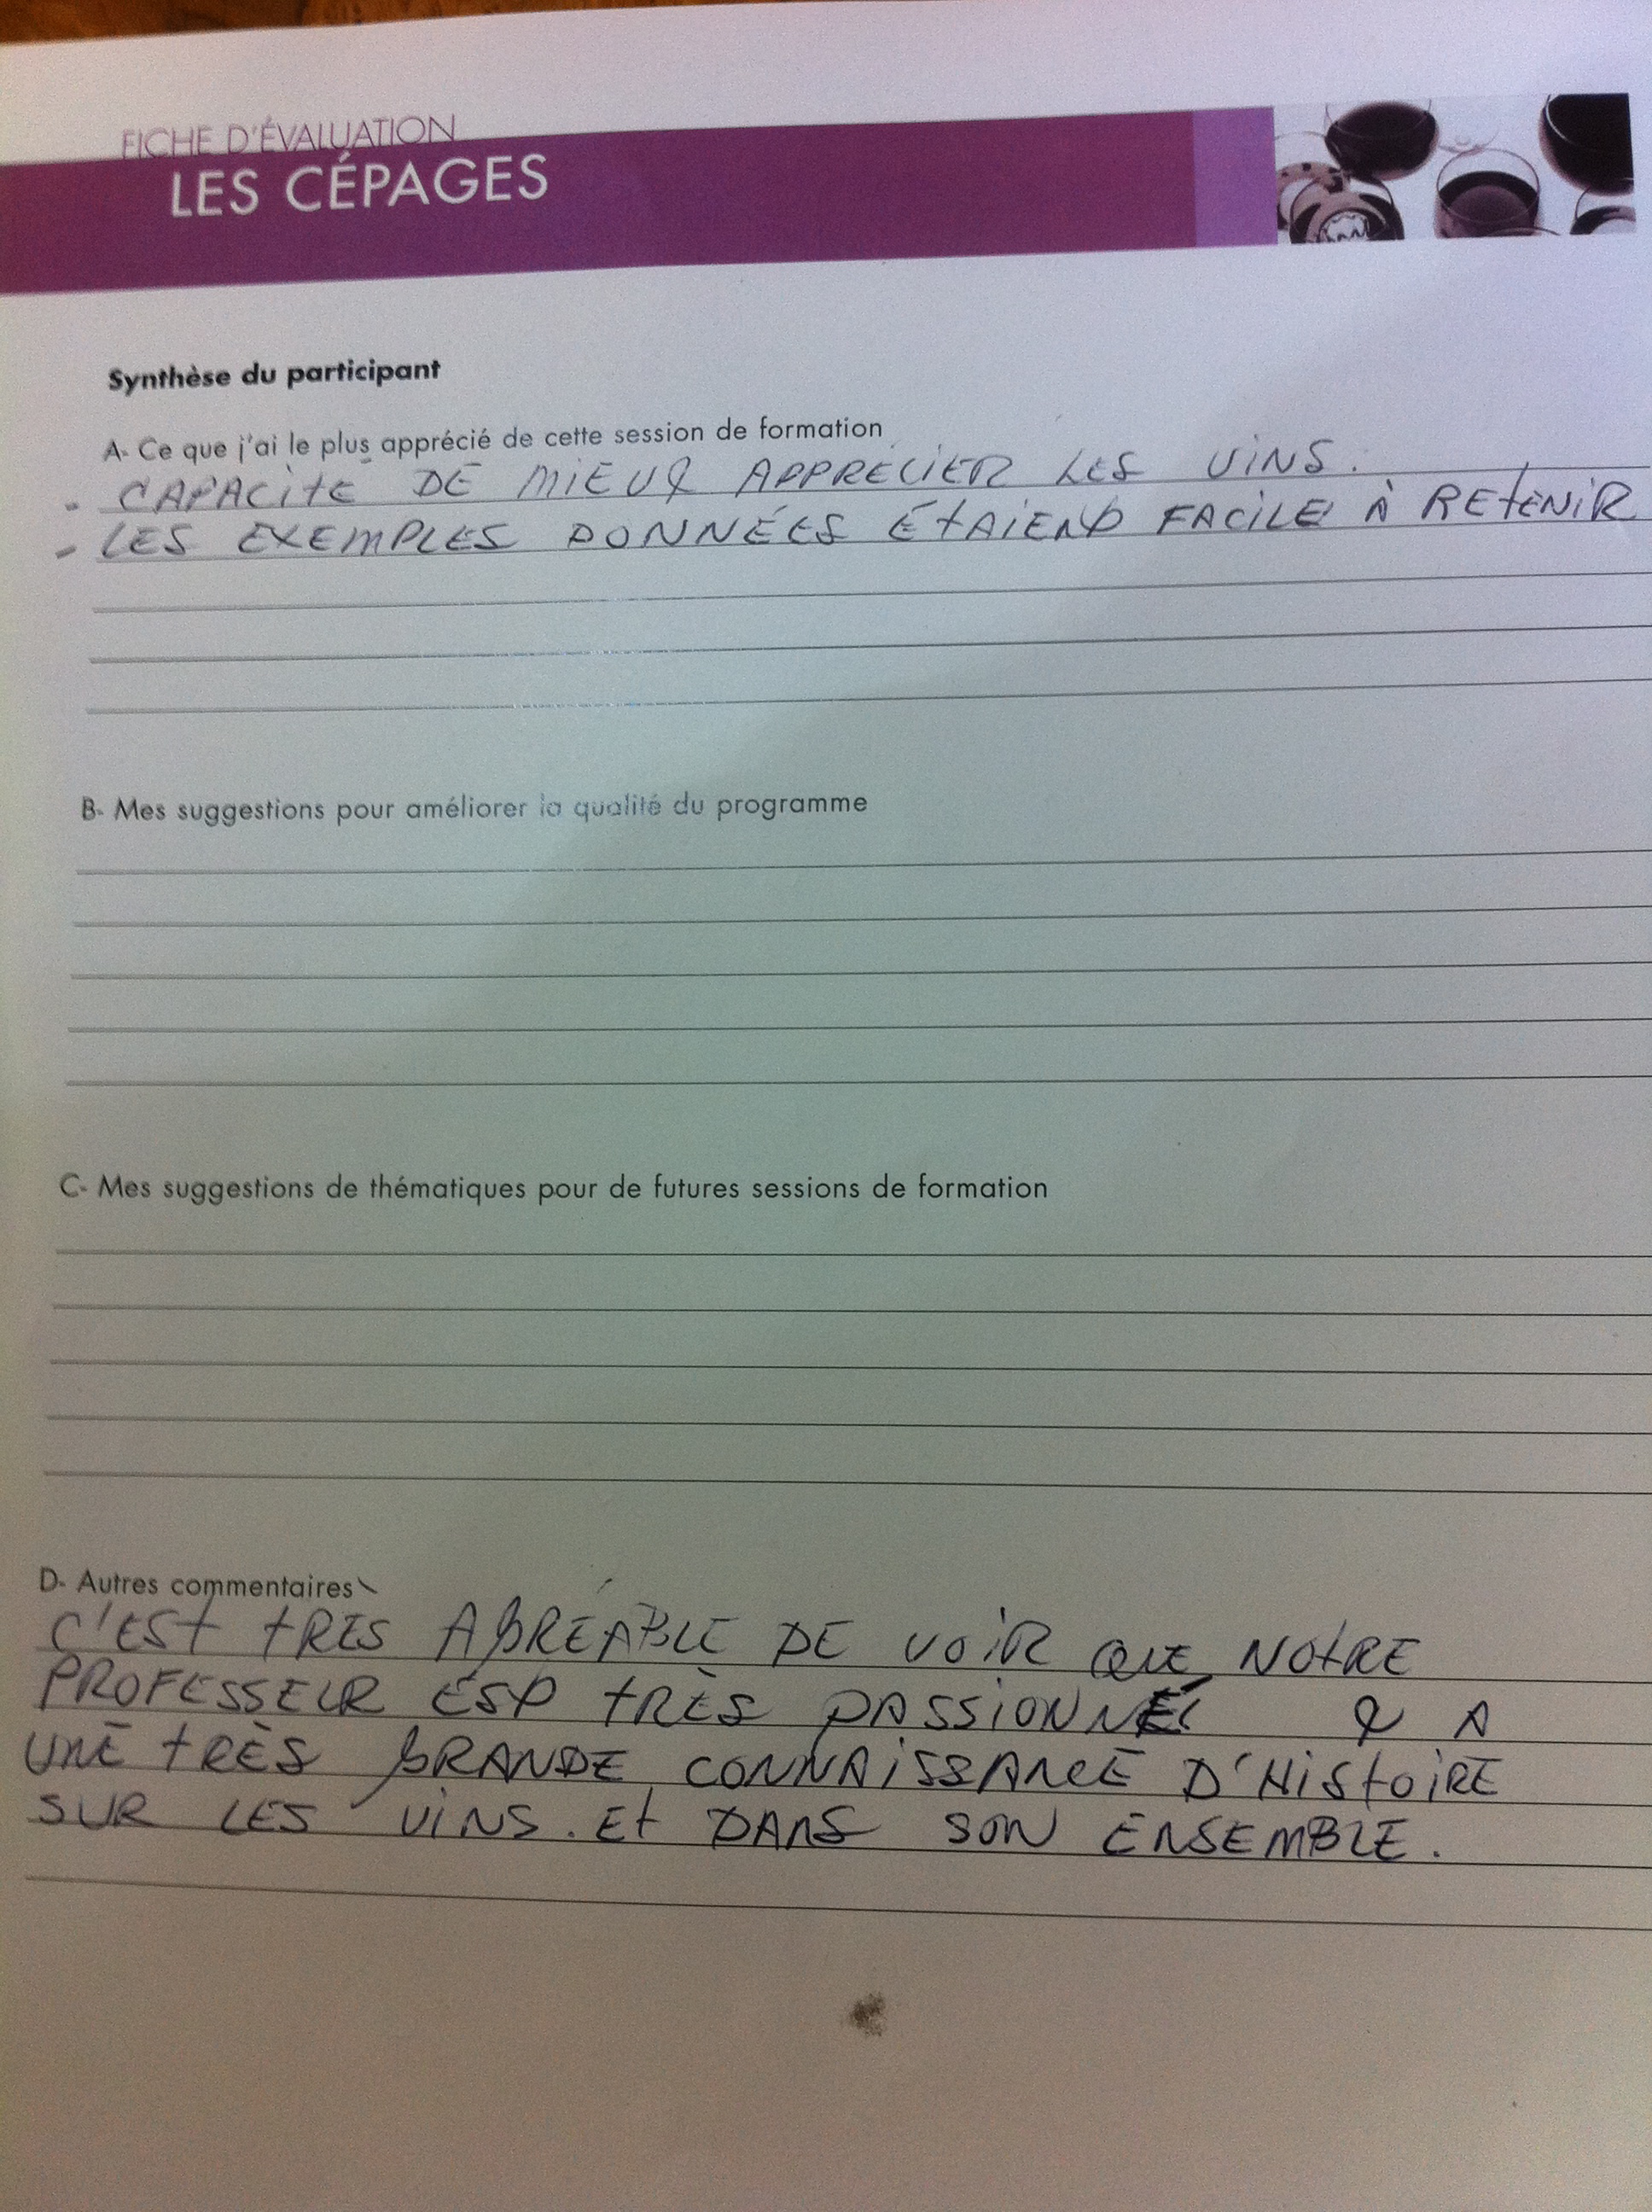 FICHE D'ÉVALUATION
LES CÉPAGES
Synthèse du participant
A- Ce que j'ai le plus apprécié de cette session de formation
- CAPACITÉ DE MIEUX APPRÉCIER LES VINS.
- LES EXEMPLES DONNÉES ÉTAIENT FACILE À RETENIR
B- Mes suggestions pour améliorer la qualité du programme
C- Mes suggestions de thématiques pour de futures sessions de formation
D- Autres commentaires
C'EST TRÈS AGRÉABLE DE VOIR QUE NOTRE
PROFESSEUR EST TRÈS PASSIONNÉ & A
UNE TRÈS GRANDE CONNAISSANCE D'HISTOIRE
SUR LES VINS. Et DANS SON ENSEMBLE.